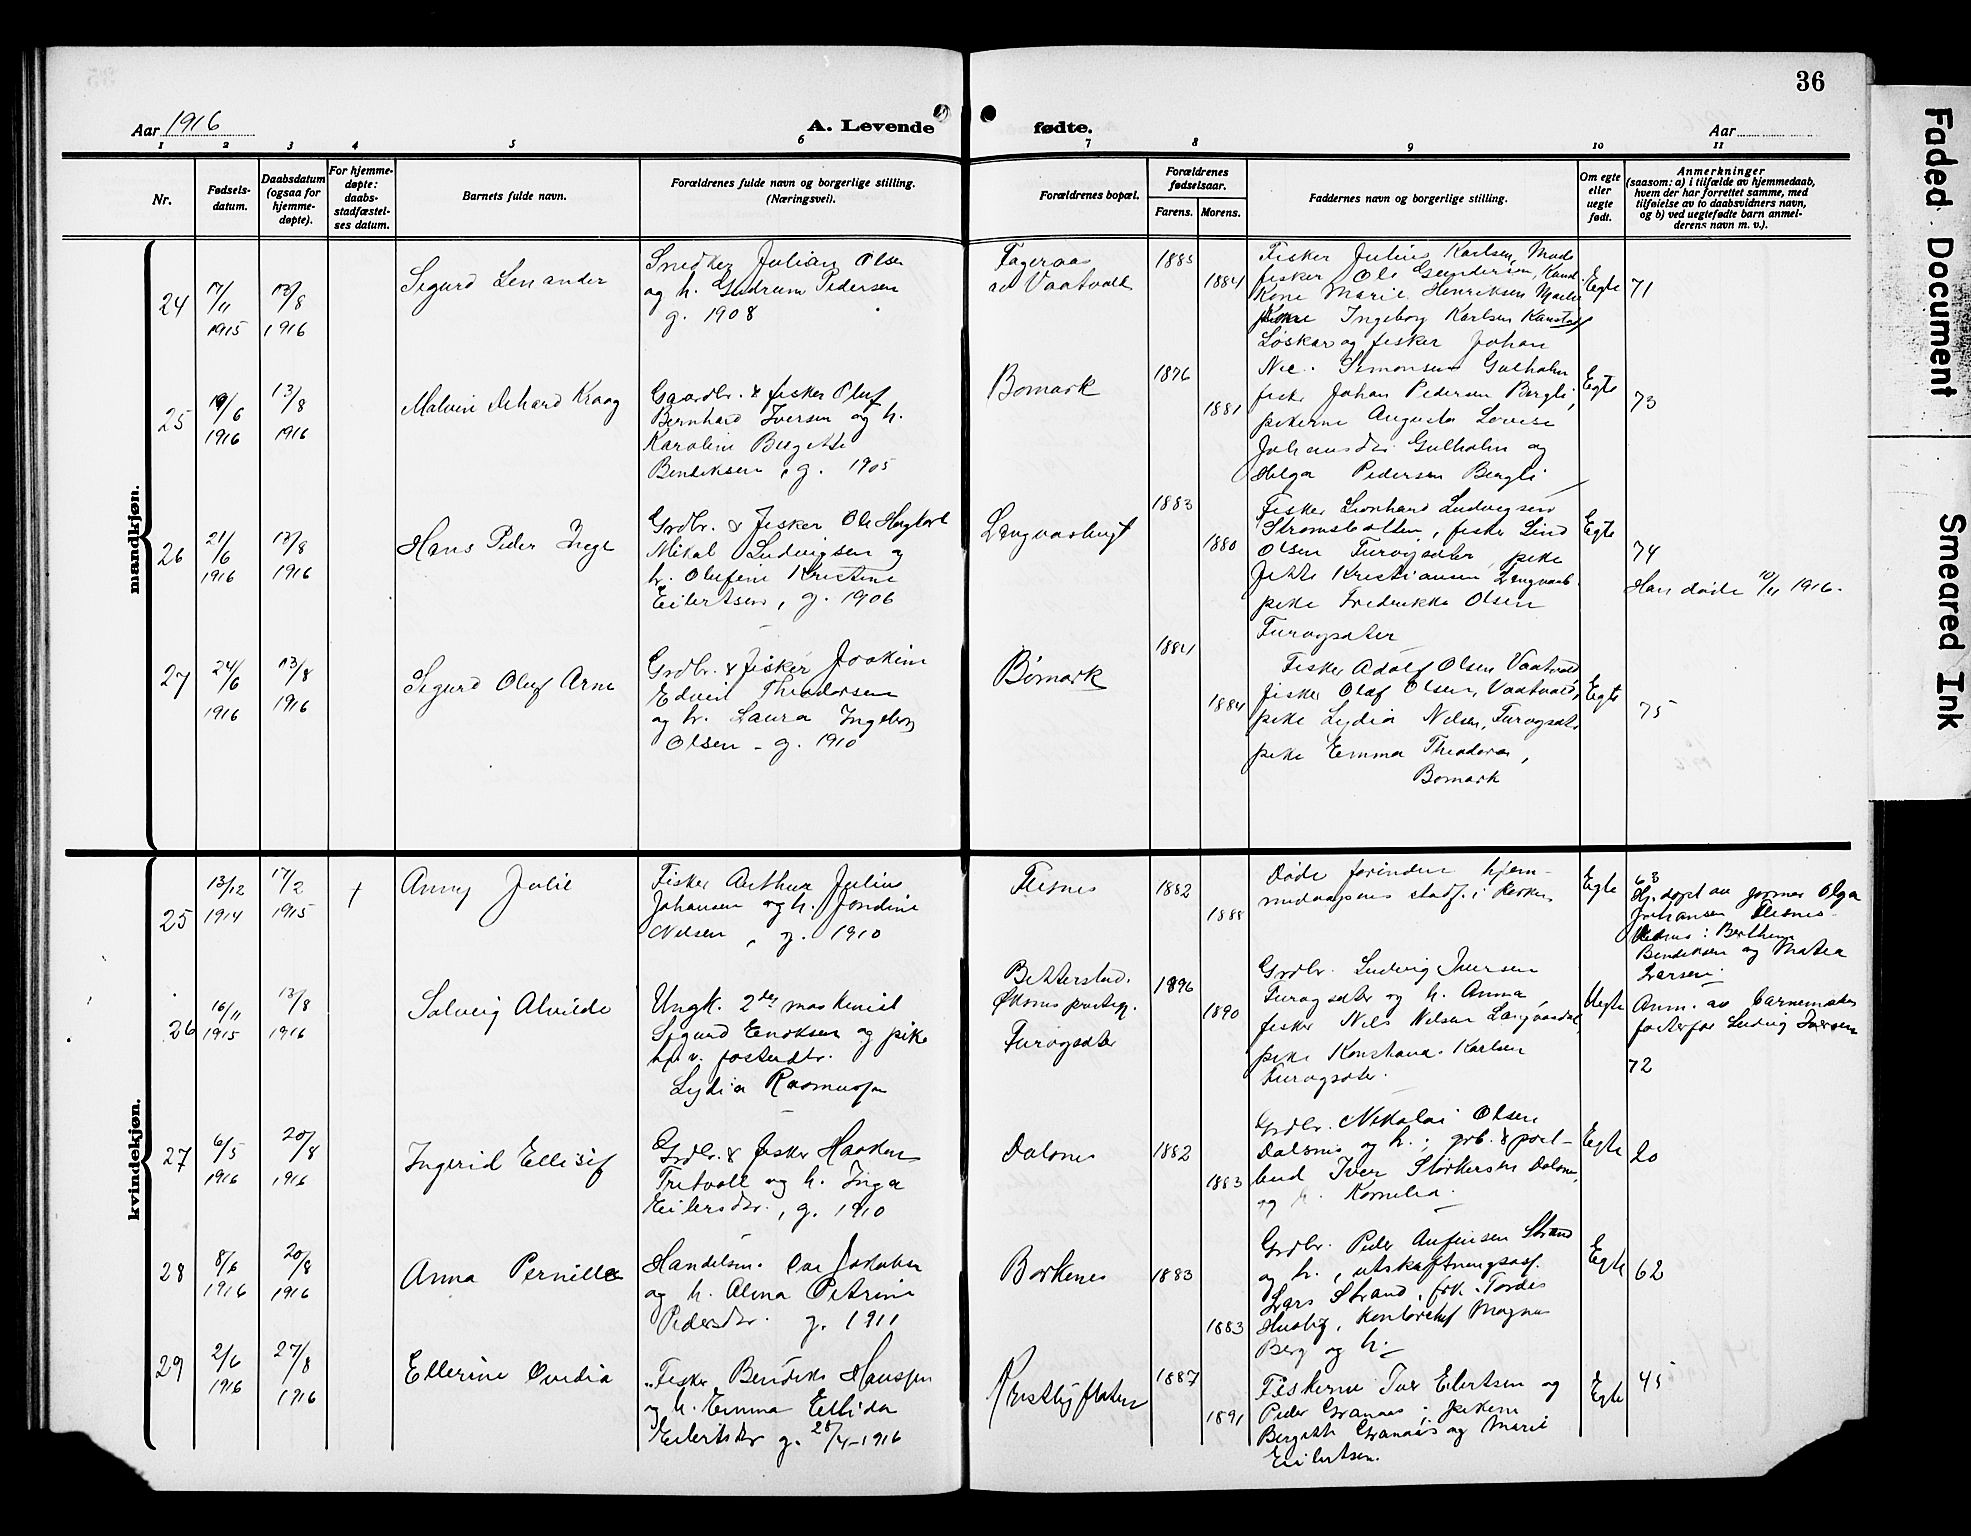 36
Aar 1916
A. Levende
fødte.
Aar
1 2 3 4 5 6 7 8 9 10 11
Nr.
Fødsels-
datum.
Daabsdatum
(ogsaa for
hjemme-
døpte).
For hjemme-
døpte:
daabs-
stadfæstel-
ses datum.
Barnets fulde navn.
Forældrenes fulde navn og borgerlige stilling.
(Næringsvei).
Forældrenes bopæl.
Forældrenes
fødselsaar.
Farens. Morens.
Faddernes navn og borgerlige stilling.
Om egte
eller
uegte
født.
Anmerkninger
(saasom: a) i tilfælde av hjemmedaab,
hvem der har forrettet samme, med
tilføielse av to daabsvidners navn,
og b) ved uegtefødte barn anmel-
derens navn m. v.).
mandkjøn.
24
17/11
1915
13/8
1916
Sigurd Lenander
Snedker Julian Olsen
og h. Gudrun Pedersen
g. 1908
Fageraas
1885
1884
Fisker Julius Karlsen,
fisker Ole Gundersen,
Kone Marie Henriksen
Ingeborg Karlsen Kanstad
og fisker Johan
Egte
71
25
19/6
1916
13/8
1916
Malvin Kraag
Gaardbr. & fisker Oluf
Bernhard Iversen og h.
Karoline Birgitte
Bendiksen, g. 1905
Bomark
1876
1881
Simonsen Gulholm
fisker Johan Pedersen Bergli,
pikerne Augusta Lovise
Johansdtr. Gulholm og
Helga Pedersen Bergli
Egte
73
26
21/6
1916
13/8
1916
Hans Peder Inge
Grdbr. & fisker Ole
Mikal Ludvigsen og
h. Olufine Kristine
Eilertsen, g. 1906
Langvasbugt
1883
1880
Fisker Leonhard Ludvigsen
fisker Lind
Olsen Furogsater, pike
Jette Kristiansen
pike Fredrikke Olsen
Furogsater
Egte
74
Han døde 10/11 1916.
27
24/6
1916
13/8
1916
Sigurd Oluf Arne
Grdbr. & fisker Joakim
Edvin Theodorsen
og h. Laura Ingeborg
Olsen - g. 1910
Bomark
1884
1884
Fisker Adolf Olsen Vaatvold,
fisker Olaf Olsen, Vaatvold,
pike Lydia Nilsen, Furogsater
pike Emma Theodora,
Bomark
Egte
75
kvindekjøn.
25
13/12
1914
17/2
1915
†
Anny Julie
Fisker Arthur Julius
Johansen og h. Jondine
Nilsen, g. 1910
Flesnes
1882
1888
Døde forinden hjem-
medaapens stadf. i kirken
Egte
63
Hj. døpt av jormor Olga
Johansen Flesnes.
Bendiksen og Matea
Larsen.
26
16/11
1915
13/8
1916
Solveig Alvilde
Ungk. 2den maskinist
Sigurd Enoksen og pike
Lydia Rasmussen
Furogsater
1896
1890
Grdbr. Ludvig Iversen
Furogsater og h. Anna,
fisker Nils Nilsen
pike Konstana Karlsen
Furogsater.
Uegte
Anm. av barnemoders
fosterfar Ludvig Iversen
72
27
6/5
1916
20/8
1916
Ingerid Ellisif
Grdbr. & fisker Haakon
Tretvoll og h. Inga
Eilersdtr., g. 1910
Dalsnes
1882
1883
Grdbr. Nikolai Olsen
Dalsnes og h.; grb. & post-
bud Iver Størkersen Dalsnes,
og h. Kornelia.
Egte
20
28
8/6
1916
20/8
1916
Anna Pernille
Handelsm. Ove Jakobsen
og h. Alma Petrine
Pedersdtr. g. 1911
Borkenes
1883
1883
Grdbr. Peder Anfinsen Strand
og h., utskiftningsass.
Lars Strand, frk. Tordis
Husby, kontorchef Magnus
Berg og h.
Egte
62
29
2/6
1916
27/8
1916
Ellerine Ovedia
Fisker Bendiks Hanssen
og h. Emma Ellida
Eilertsdtr g. 28/4-1916
1887
1891
Fiskerne Iver Eilertsen og
Peder Granaas; pikene
Bergitte Granaas og Marie
Eilertsen.
Egte
45
Faded Document
Smeared Ink